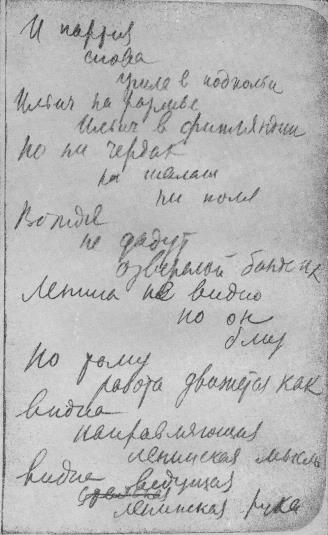 И партия
снова
ушла в подполье
Ильич на Разливе
Ильич в финляндии
Но ни чердак
ни шалаш
ни поле
Вождя
не дадут
озверелой банде их
Ленина не видно
но он
близ
По тому
работа движется как
видна
направляющая
ленинская мысль
видна ведущая
ленинская рука